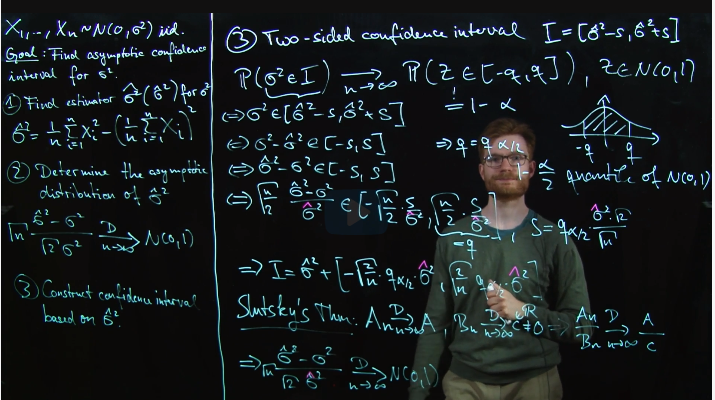 X₁,..., Xₙ ~ N(0,σ²) iid.
Goal: Find asymptotic confidence
interval for σ².
① Find estimator σ̂²(σ̂²) for σ²
σ̂² = 1/n Σᵢ₌₁ⁿ Xᵢ² - (1/n Σᵢ₌₁ⁿ Xᵢ)²
② Determine the asymptotic
distribution of σ̂²
√n (σ̂² - σ²)/(√2 σ²) →ᴰ n→∞ N(0,1)
③ Construct confidence interval
based on σ̂².
③ Two-sided confidence interval I = [σ̂²-s, σ̂²+s]
P(σ² ∈ I) → n→∞ P(Z ∈ [-q,q]), Z ∈ N(0,1)
! = 1 - α
⇔ σ² ∈ [σ̂²-s, σ̂²+s]
⇔ σ² - σ̂² ∈ [-s, s]
⇒ q = q α/2
-q q
⇔ σ̂² - σ² ∈ [-s, s]
1 - α/2 quantile of N(0,1)
⇔ √(n/2) (σ̂² - σ²)/σ̂² ∈ [-√(n/2) · s/σ̂², √(n/2) · s/σ̂²], s = q α/2 · σ̂² · √2/√n
= q
⇒ I = σ̂² + [-√(2/n) · q α/2 · σ̂², √(2/n) q α/2 · σ̂²]
Slutsky's Thm: Aₙ →ᴰ n→∞ A, Bₙ →ᴰ n→∞ c ≠ 0 ⇒ Aₙ/Bₙ →ᴰ n→∞ A/c
⇒ √n (σ̂² - σ²)/(√2 σ̂²) →ᴰ n→∞ N(0,1)